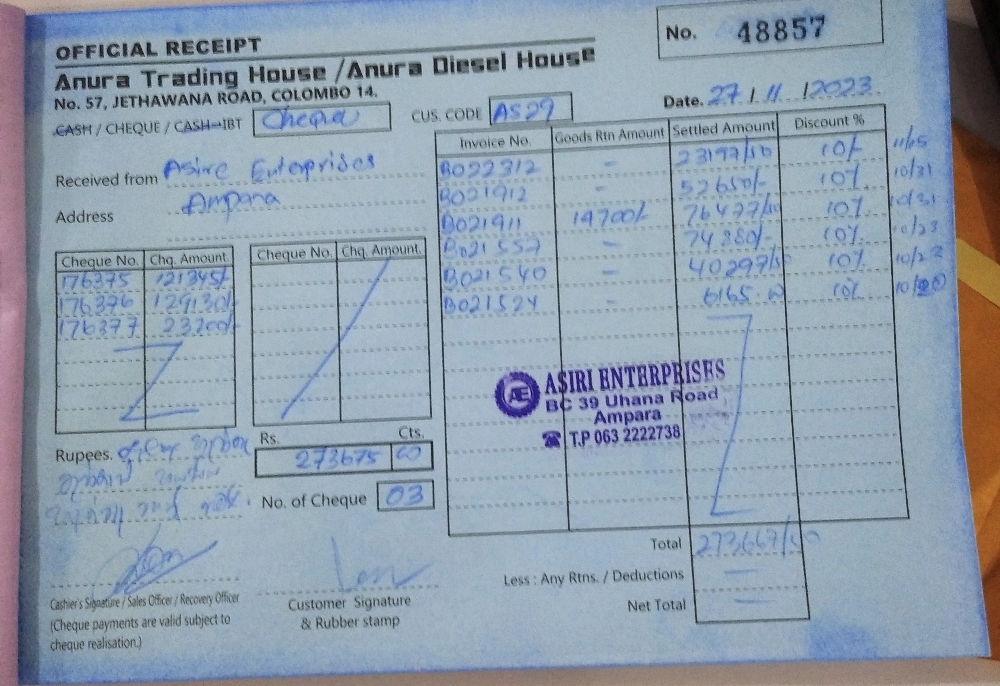 OFFICIAL RECEIPT
No. 48857
Anura Trading House / Anura Diesel House
No. 57, JETHAWANA ROAD, COLOMBO 14.
CASH / CHEQUE / CASH-IBT Cheque CUS. CODE AS29 Date. 27 / 11 / 2023
Received from Asire Enterprises
Address Ampara
Invoice No. Goods Rtn Amount Settled Amount Discount %
B022312 - 23197/50 10% 11/05
B021912 - 52650/- 10% 10/31
B021911 14700/- 76477/50 10% 10/31
B021557 - 74880/- 10% 10/23
B021540 - 40297/50 10% 10/23
B021524 - 6165 10%
Cheque No. Chq. Amount
176375 121345/-
176376 129130/-
176377 23200/-
Cheque No. Chq. Amount.
ASIRI ENTERPRISES
BC 39 Uhana Road
Ampara
T.P 063 2222738
AE
Rupees.
Rs. Cts.
273675
No. of Cheque 03
Total 273667/50
Less : Any Rtns. / Deductions -
Net Total -
Cashier's Signature / Sales Officer / Recovery Officer
(Cheque payments are valid subject to
cheque realisation.)
Customer Signature
& Rubber stamp